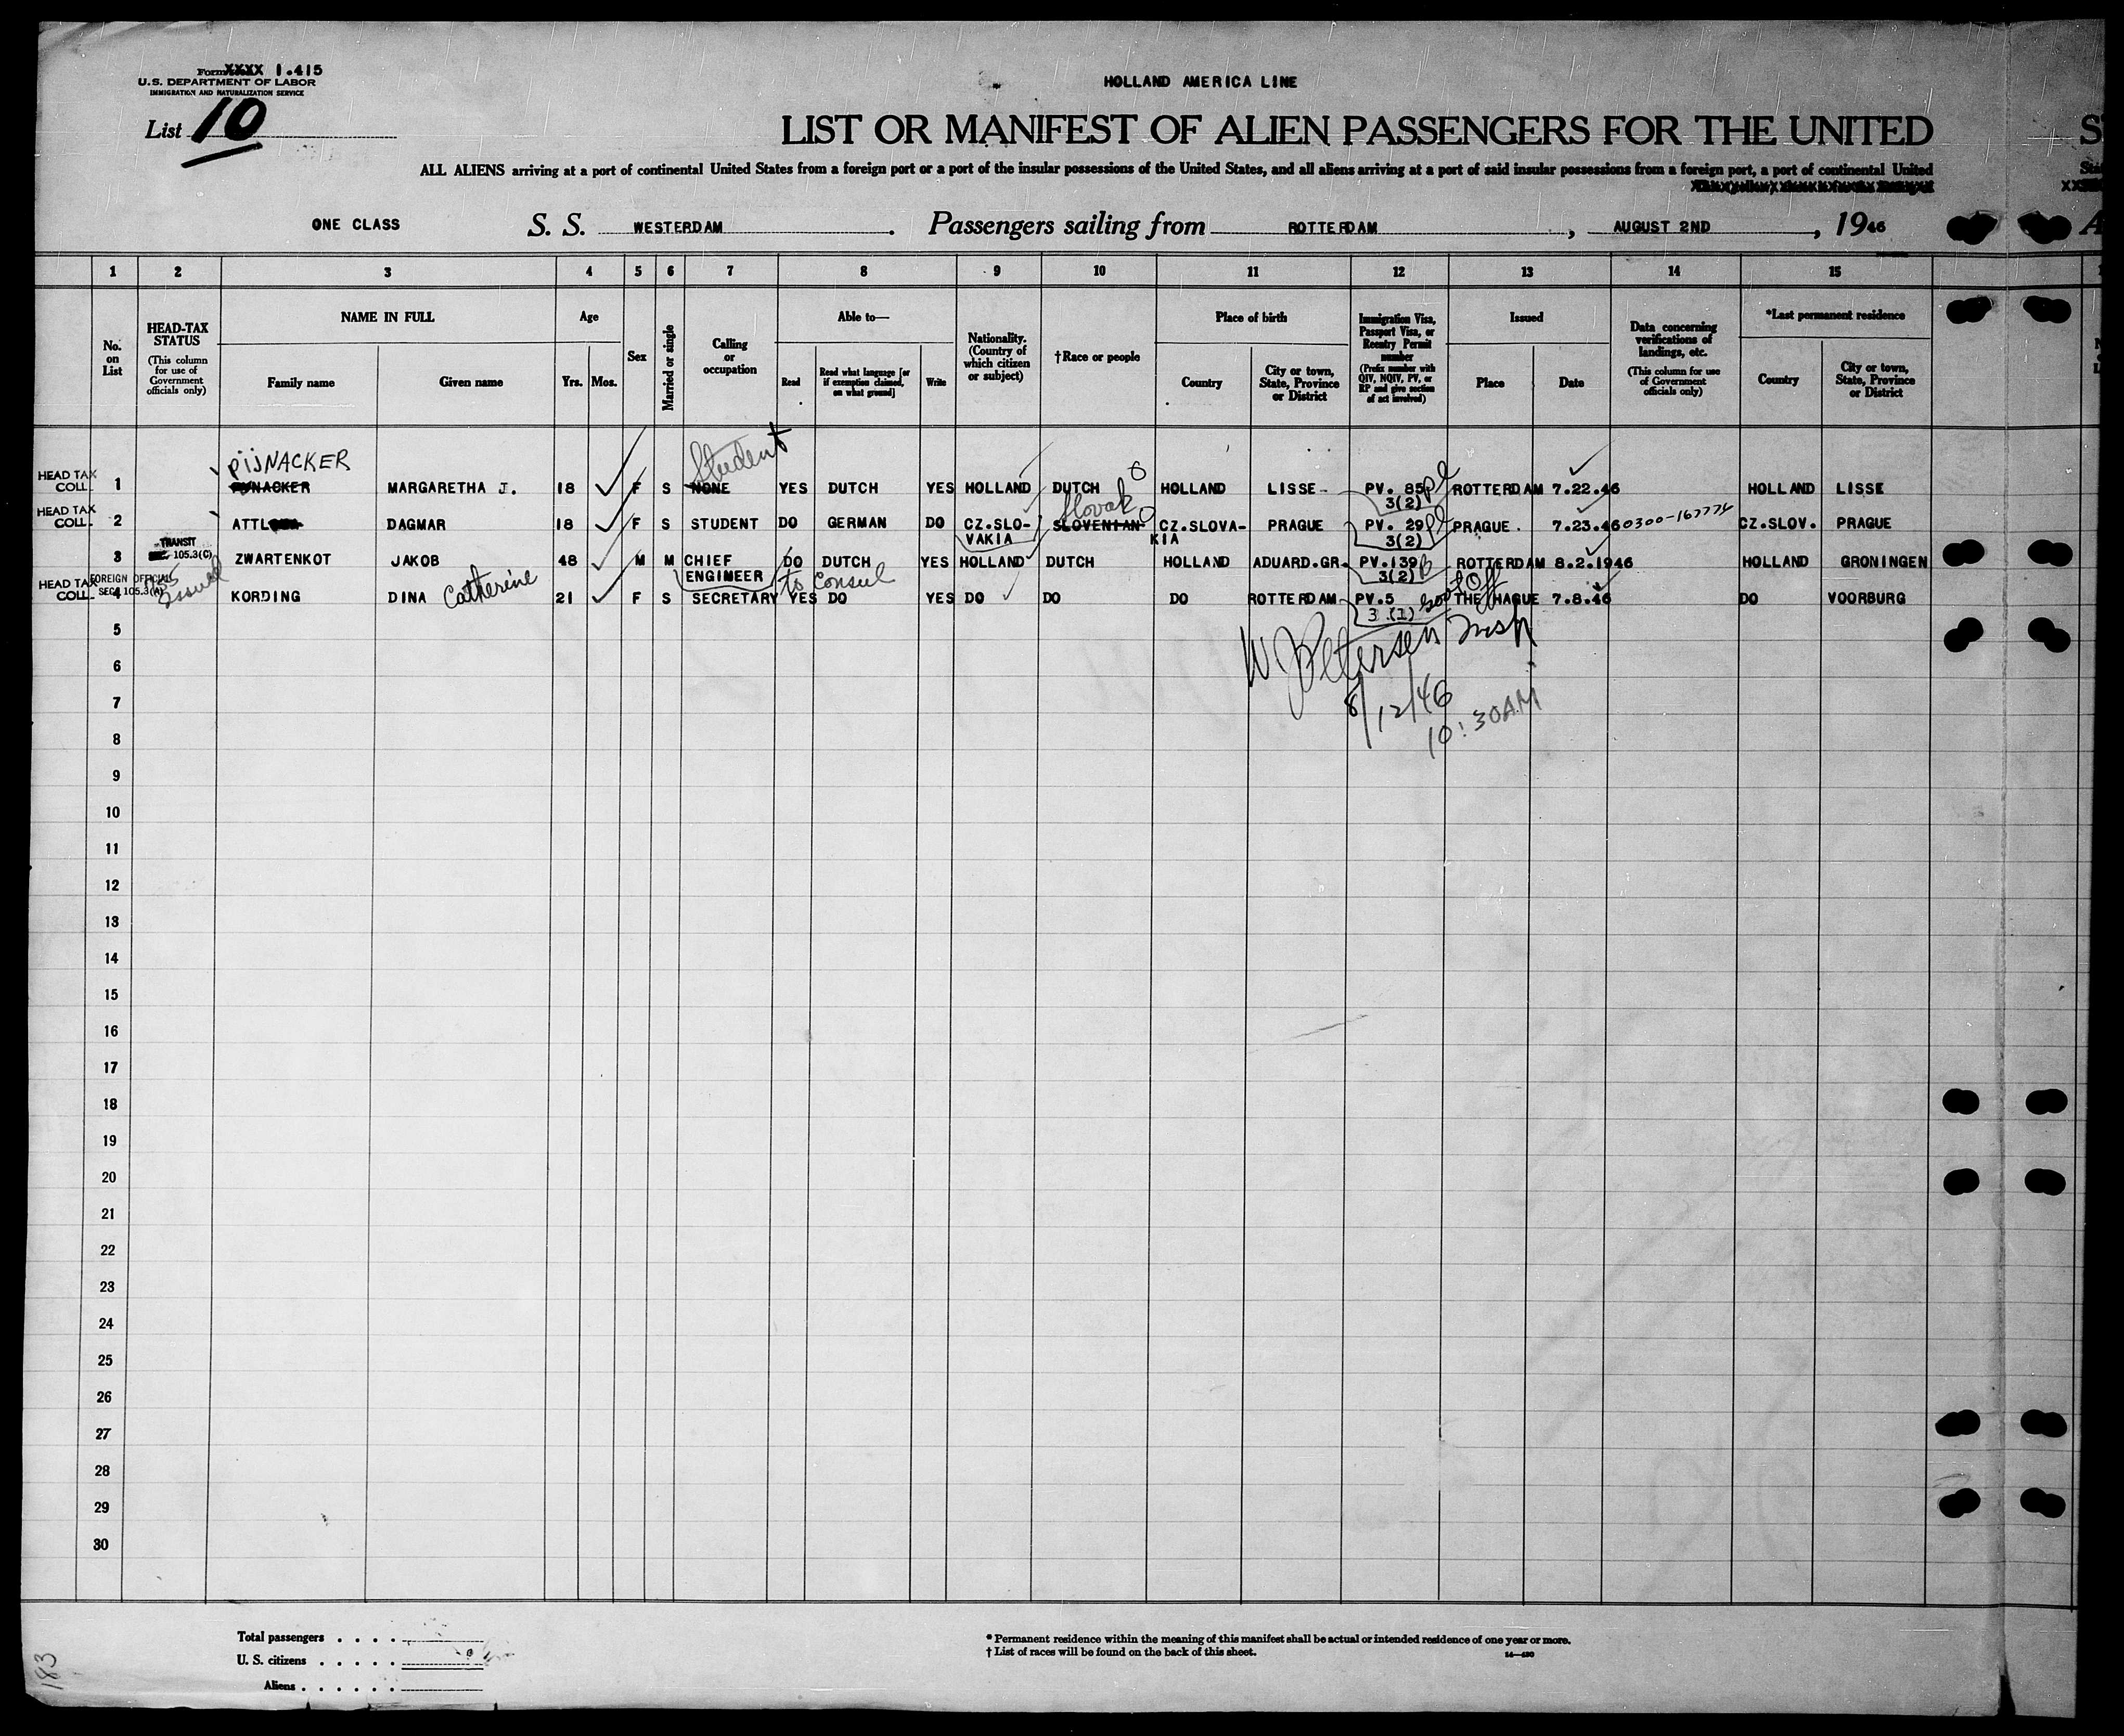 Form XXXX 1.415
U.S. DEPARTMENT OF LABOR
IMMIGRATION AND NATURALIZATION SERVICE
List 10
HOLLAND AMERICA LINE
LIST OR MANIFEST OF ALIEN PASSENGERS FOR THE UNITED
ALL ALIENS arriving at a port of continental United States from a foreign port or a port of the insular possessions of the United States, and all aliens arriving at a port of said insular possessions from a foreign port, a port of continental United
ONE CLASS S. S. WESTERDAM . Passengers sailing from ROTTERDAM , AUGUST 2ND , 1946
1 2 3 4 5 6 7 8 9 10 11 12 13 14 15
No. on List
HEAD-TAX STATUS (This column for use of Government officials only)
NAME IN FULL
Family name Given name
Age
Yrs. Mos.
Sex
Married or single
Calling or occupation
Able to—
Read
Read what language [or if exemption claimed, on what ground]
Write
Nationality. (Country of which citizen or subject)
†Race or people
Place of birth
Country
City or town, State, Province or District
Immigration Visa, Passport Visa, or Reentry Permit number (Prefix number with QIV, NQIV, PV, or RP and give section of act involved)
Issued
Place Date
Data concerning verifications of landings, etc. (This column for use of Government officials only)
*Last permanent residence
Country
City or town, State, Province or District
PijNACKER Student
HEAD TAX COLL. 1 MARGARETHA J. 18 F S NONE YES DUTCH YES HOLLAND DUTCH HOLLAND LISSE PV. 85 3(2) ROTTERDAM 7.22.46 HOLLAND LISSE
Slovak
HEAD TAX COLL. 2 ATTL DAGMAR 18 F S STUDENT DO GERMAN DO CZ.SLOVAKIA SLOVENIAN CZ.SLOVAKIA PRAGUE PV. 29 3(2) PRAGUE. 7.23.46 0300-167774 CZ.SLOV. PRAGUE
TRANSIT 105.3(C)
3 ZWARTENKOT JAKOB 48 M M CHIEF ENGINEER DO DUTCH YES HOLLAND DUTCH HOLLAND ADUARD.GR. PV.139 3(2) B ROTTERDAM 8.2.1946 HOLLAND GRONINGEN
FOREIGN OFFICIAL SEC. 105.3(A) Issued
HEAD TAX COLL. 4 KORDING DINA Catherine 21 F S SECRETARY to Consul YES DO YES DO DO DO ROTTERDAM PV.5 3.(1) Govt Off THE HAGUE 7.8.46 DO VOORBURG
W. J. Petersen Insp
8/12/46
10:30AM
5
6
7
8
9
10
11
12
13
14
15
16
17
18
19
20
21
22
23
24
25
26
27
28
29
30
Total passengers . . . .
U. S. citizens . . . . .
Aliens . . . . . .
* Permanent residence within the meaning of this manifest shall be actual or intended residence of one year or more.
† List of races will be found on the back of this sheet.
183